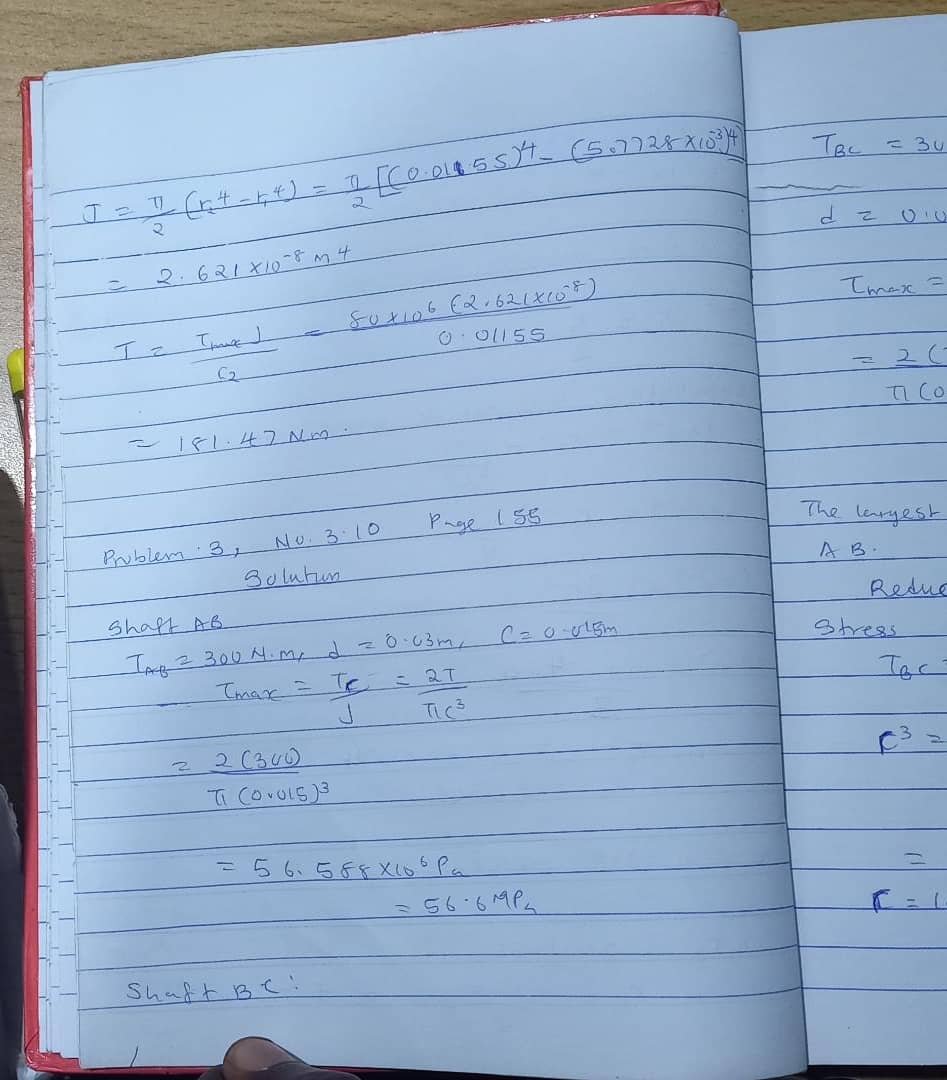 J = π/2 (r₂⁴ - r₁⁴) = π/2 [(0.01155)⁴ - (5.7728 × 10⁻³)⁴
= 2.621 × 10⁻⁸ m⁴
T = τmax J / C₂ = 80 × 10⁶ (2.621 × 10⁻⁸) / 0.01155
= 181.47 Nm.
Problem 3, No. 3.10 Page 155
Solution
Shaft AB
TAB = 300 N.m, d = 0.03m, C = 0.015m
τmax = Tc / J = 2T / πc³
= 2(300) / π(0.015)³
= 56.588 × 10⁶ Pa
= 56.6 MPa
Shaft BC:
TBC =
d =
τmax =
= 2 (
π (0
The largest
AB.
Stress
TBC
c³ =
=
c =